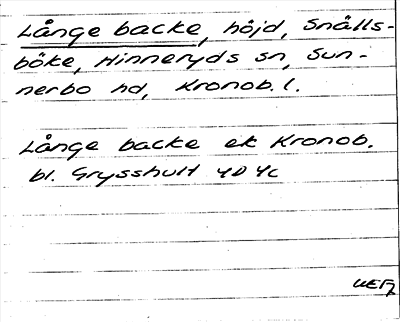 Långe backe, höjd, Snälls-
böke, Hinneryds sn, Sun-
nerbo hd, Kronob. l.
Långe backe ek Kronob.
bl. Grysshult 4D 4c